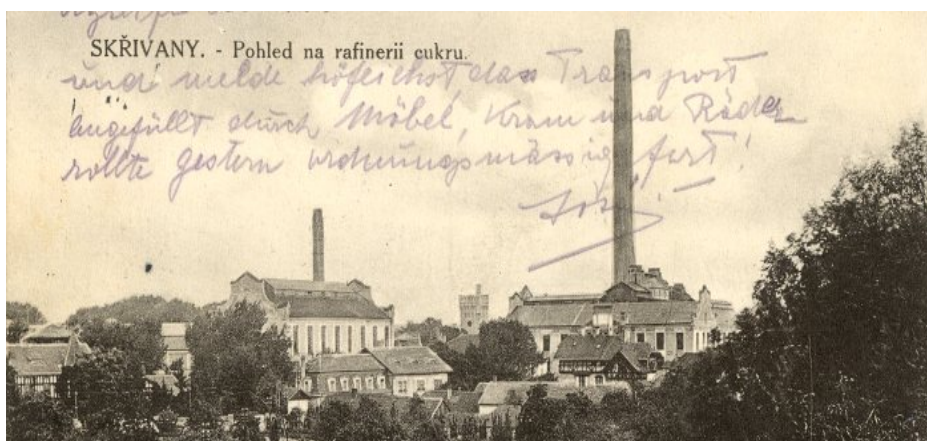 SKŘIVANY. - Pohled na rafinerii cukru.
und melde höflichst, dass Transport
angefüllt durch Möbel, Kram und Räder
rollte gestern ordnungsmässig fort!